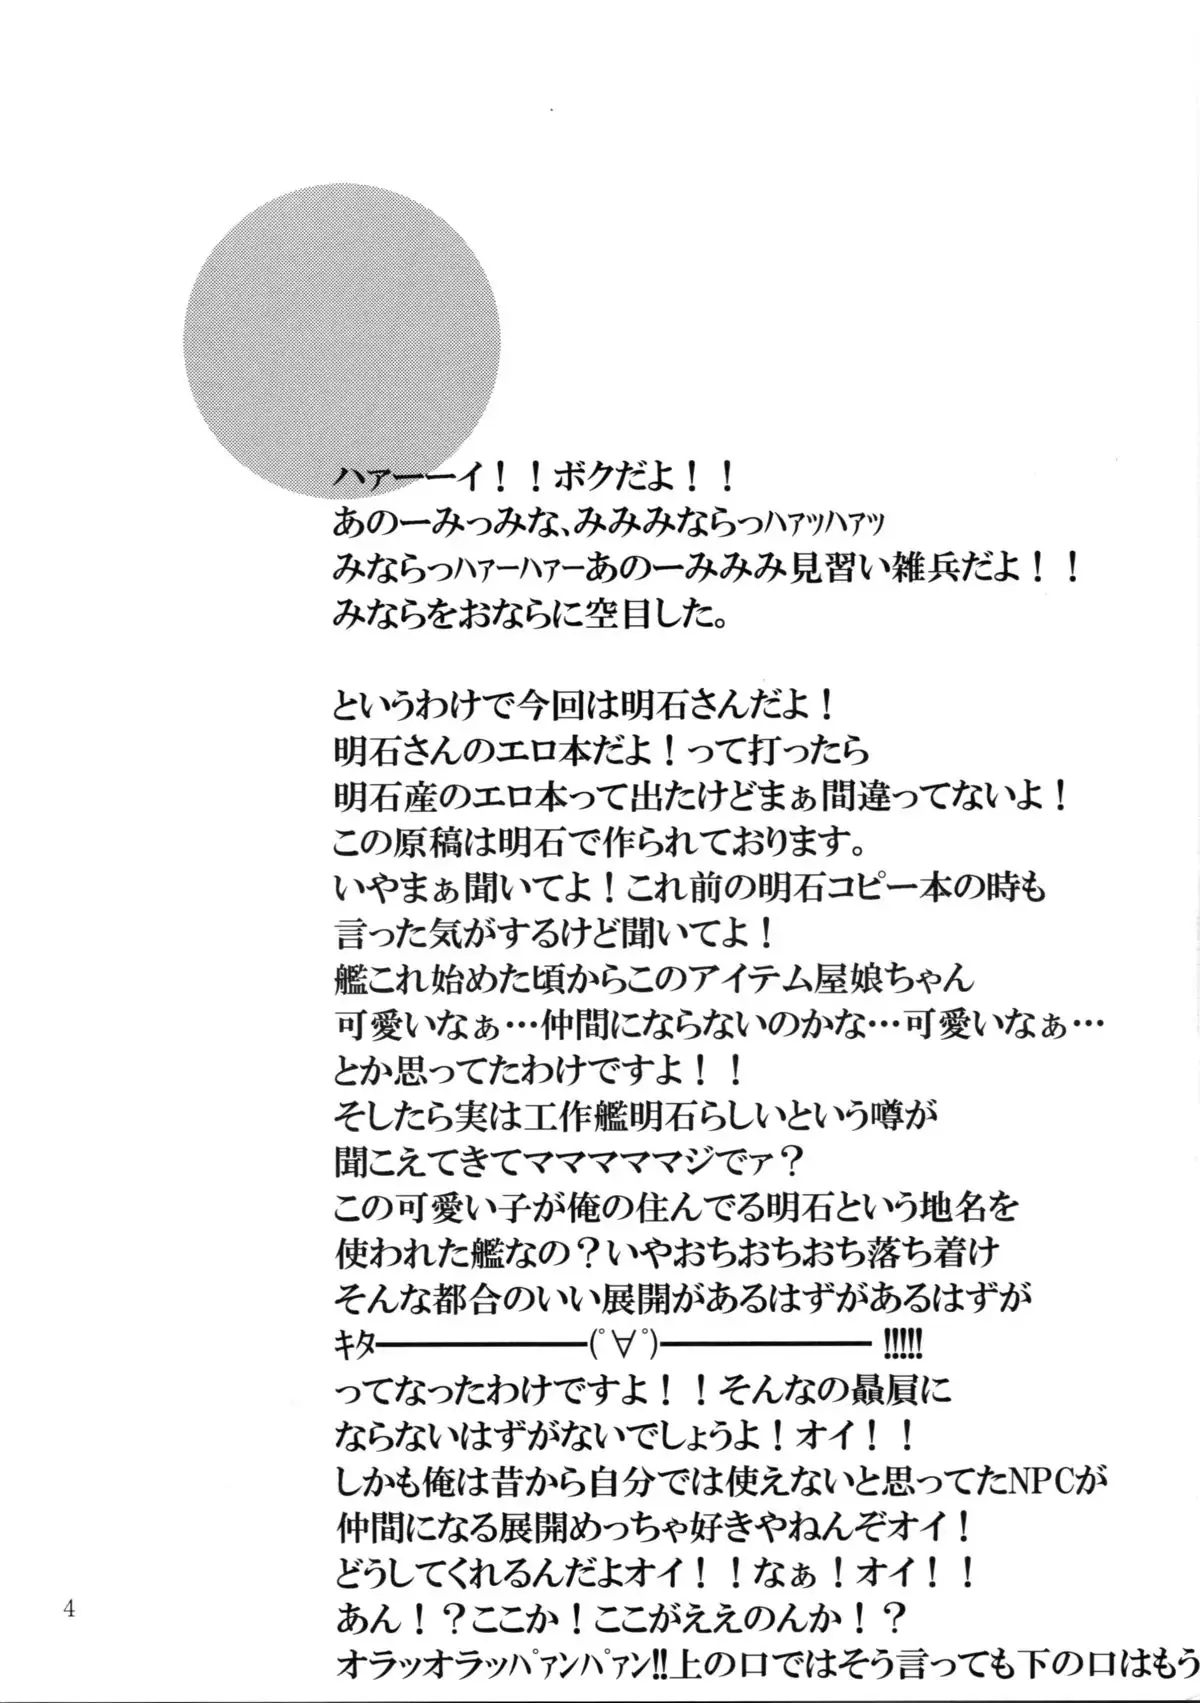 ハァーーイ！！ボクだよ！！
あのーみっみな、みみみならっﾊｧｯﾊｧｯ
みならっﾊｧーﾊｧーあのーみみみ見習い雑兵だよ！！
みならをおならに空目した。
というわけで今回は明石さんだよ！
明石さんのエロ本だよ！って打ったら
明石産のエロ本って出たけどまぁ間違ってないよ！
この原稿は明石で作られております。
いやまぁ聞いてよ！これ前の明石コピー本の時も
言った気がするけど聞いてよ！
艦これ始めた頃からこのアイテム屋娘ちゃん
可愛いなぁ…仲間にならないのかな…可愛いなぁ…
とか思ってたわけですよ！！
そしたら実は工作艦明石らしいという噂が
聞こえてきてママママママジでァ？
この可愛い子が俺の住んでる明石という地名を
使われた艦なの？いやおちおちおち落ち着け
そんな都合のいい展開があるはずがあるはずが
ｷﾀ━━━━━━(ﾟ∀ﾟ)━━━━━━ !!!!!
ってなったわけですよ！！そんなの贔屓に
ならないはずがないでしょうよ！オイ！！
しかも俺は昔から自分では使えないと思ってたNPCが
仲間になる展開めっちゃ好きやねんぞオイ！
どうしてくれるんだよオイ！！なぁ！オイ！！
あん！？ここか！ここがええのんか！？
オラッオラッﾊﾟｧﾝﾊﾟｧﾝ!!上の口ではそう言っても下の口はもう
4